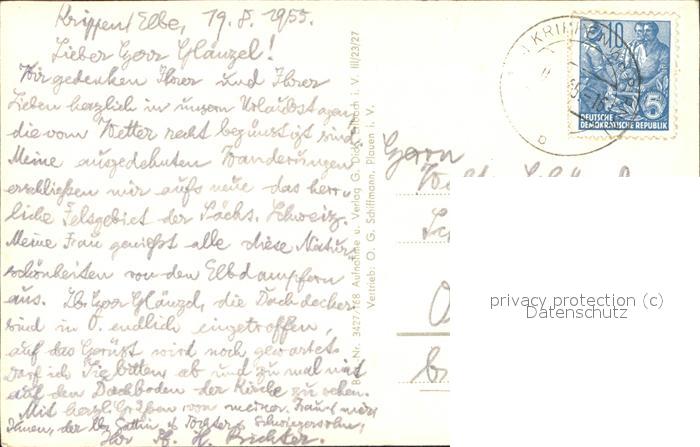 Krippen/Elbe, 19.8.1955.
Lieber Herr Glänzel!
Wir gedenken Ihrer und Ihrer
Lieben herzlich in unsern Urlaubstagen,
die vom Wetter recht begünstigt sind.
Meine ausgedehnten Wanderungen
erschließen mir aufs neue das herr-
liche Felsgebiet der Sächs. Schweiz.
Meine Frau genießt alle diese Natur-
schönheiten von den Elbdampfern
aus. Lb. Herr Glänzel, die Dachdecker
sind in O. endlich eingetroffen,
auf das Gerüst wird noch gewartet.
Darf ich Sie bitten, ab und zu mal mit
auf den Dachboden der Kirche zu sehen.
Mit herzl. Grüßen von meiner Frau u. mir
Ihnen, der lb. Gattin, Tochter u. Schwiegersohn,
Ihr H. Richter.
Best.-Nr. 3427/168 Aufnahme u. Verlag G. Dick, Erlbach i. V. III/23/27
Vertrieb: O. G. Schiffmann, Plauen i. V.
10
5
DEUTSCHE
DEMOKRATISCHE REPUBLIK
Herrn
privacy protection (c)
Datenschutz